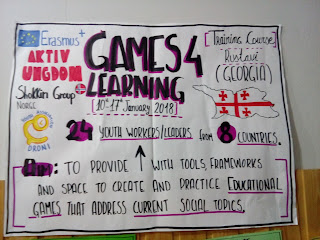 Erasmus+
AKTIV
UNGDOM
Shokkin Group
NORGE
DRONI
GAMES 4
LEARNING
10th-17th January 2018
Training Course
Rustavi
(GEORGIA)
24 YOUTH WORKERS/LEADERS FROM 8 COUNTRIES.
AIM: TO PROVIDE ↑ WITH TOOLS, FRAMEWORKS
AND SPACE TO CREATE AND PRACTICE EDUCATIONAL
GAMES THAT ADDRESS CURRENT SOCIAL TOPICS.